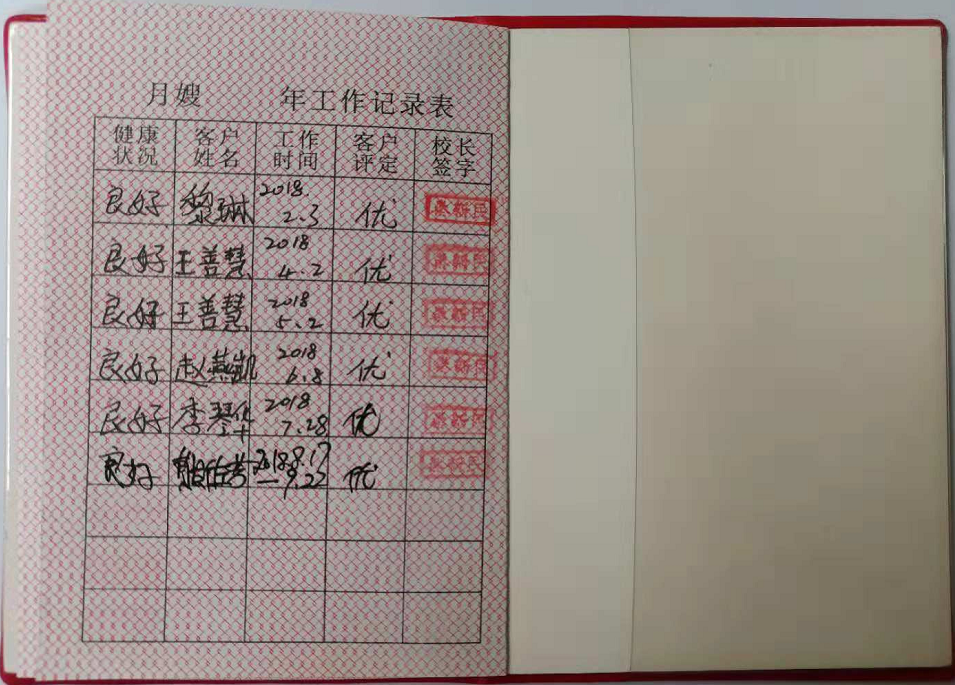 月嫂 年工作记录表
健康状况 客户姓名 工作时间 客户评定 校长签字
良好 黎琳 2018.2.3 优
良好 王善慧 2018 4.2 优
良好 王善慧 2018 5.2 优
良好 赵燕凯 2018 6.8 优
良好 李琴华 2018 7.28 优
良好 2018.8.17—9.22 优